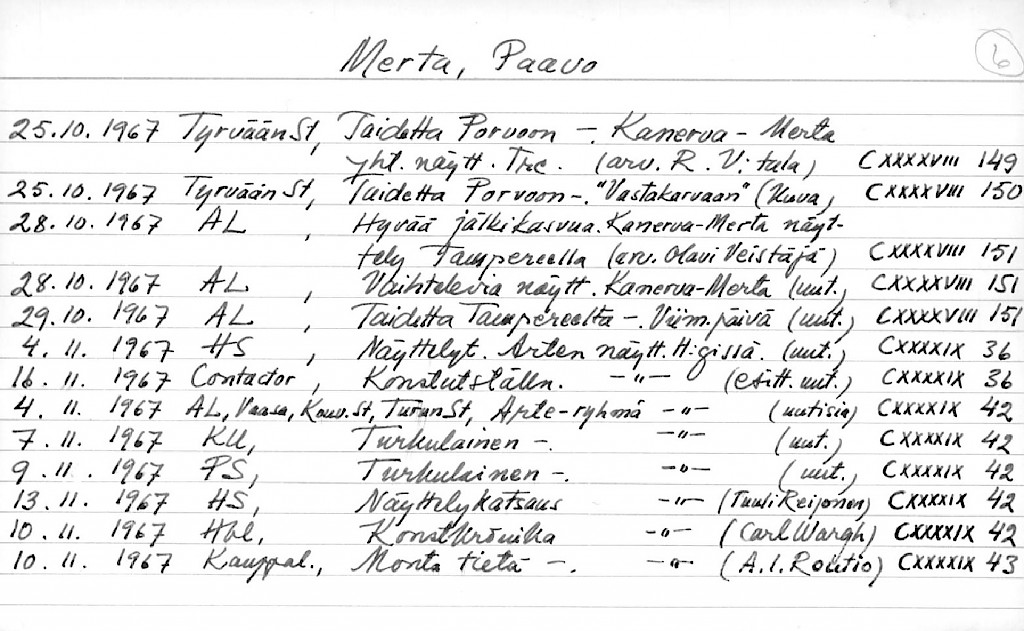 6
Merta, Paavo
25.10.1967 TyrväänSt, Taidetta Porvoon -. Kanerva - Merta
yht. näytt. Tre. (arv. R. V:tala) CXXXXVIII 149
25.10.1967 TyrväänSt, Taidetta Porvoon -. "Vastakarvaan" (kuva) CXXXXVIII 150
28.10.1967 AL , Hyvää jälkikasvua. Kanerva-Merta näyt-
tely Tampereella (arv. Olavi Veistäjä) CXXXXVIII 151
28.10.1967 AL , Vaihtelevia näytt. Kanerva-Merta (uut.) CXXXXVIII 151
29.10.1967 AL , Taidetta Tampereelta -. Viim.päivä (uut.) CXXXXVIII 151
4.11.1967 HS , Näyttelyt. Arten näytt. H:gissä. (uut.) CXXXXIX 36
16.11.1967 Contactor , Konstutställn. -"- (esitt. uut.) CXXXXIX 36
4.11.1967 AL, Vaasa, Kouv.St, TurunSt, Arte-ryhmä -"- (uutisia) CXXXXIX 42
7.11.1967 KU, Turkulainen -. -"- (uut.) CXXXXIX 42
9.11.1967 PS, Turkulainen -. -"- (uut.) CXXXXIX 42
13.11.1967 HS, Näyttelykatsaus -"- (Tuuli Reijonen) CXXXXIX 42
10.11.1967 Hbl, Konstkrönika -"- (Carl Wargh) CXXXXIX 42
10.11.1967 Kauppal., Monta tietä -. -"- (A.I. Routio) CXXXXIX 43